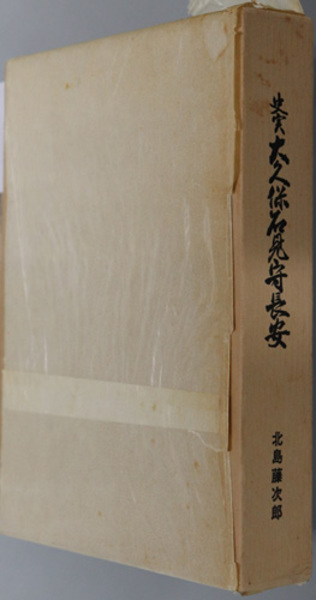 史実大久保石見守長安
北島藤次郎